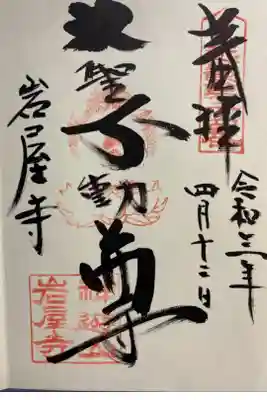 奉拝
令和三年
四月十二日
大聖不動尊
岩屋寺
神遊山
岩屋寺